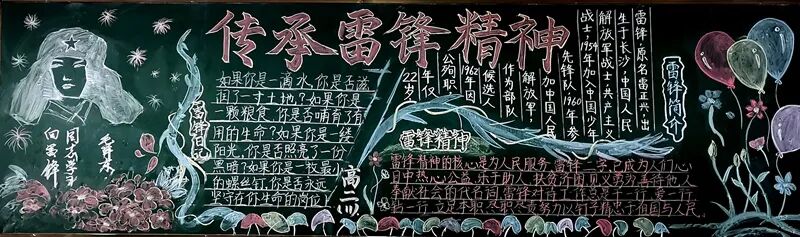 传承雷锋精神
向雷锋
同志学习
毛泽东
雷锋日记
如果你是一滴水,你是否滋
润了一寸土地?如果你是
一颗粮食,你是否哺育了有
用的生命?如果你是一线
阳光,你是否照亮了一份
黑暗?如果你是一枚最小
的螺丝钉,你是否永远
坚守在你生命的岗位
高二
雷锋简介
雷锋,原名雷正兴,出
生于长沙,中国人民
解放军战士,共产主义
战士,1954年加入中国少年
先锋队,1960年参
加中国人民
解放军.
作为部队
候选人
1962年因
公殉职
年仅
22岁
雷锋精神
雷锋精神的核心是为人民服务,雷锋二字已成为人们心
目中热心公益,乐于助人,扶贫济困,见义勇为,善待他人
奉献社会的代名词
于祖国与人民.